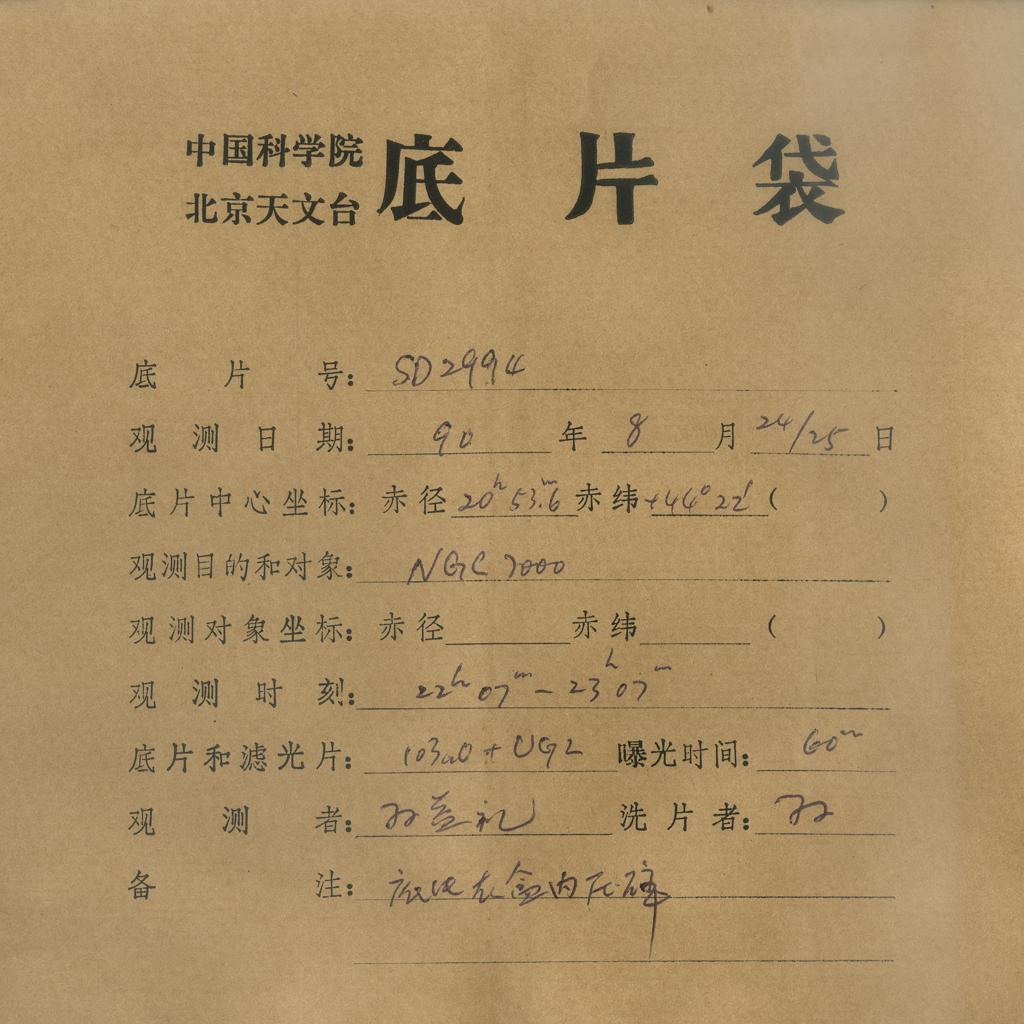 中国科学院
北京天文台
底片袋
底片号: SD2994
观测日期: 90 年 8 月 24/25 日
底片中心坐标: 赤径 20h 53m.6 赤纬 +44° 22′ ( )
观测目的和对象: NGC 7000
观测对象坐标: 赤径 赤纬 ( )
观测时刻: 22h 07m - 23h 07m
底片和滤光片: 103aO + UG2 曝光时间: 60m
观测者: 礼 洗片者:
备注: 底 盒内 碎